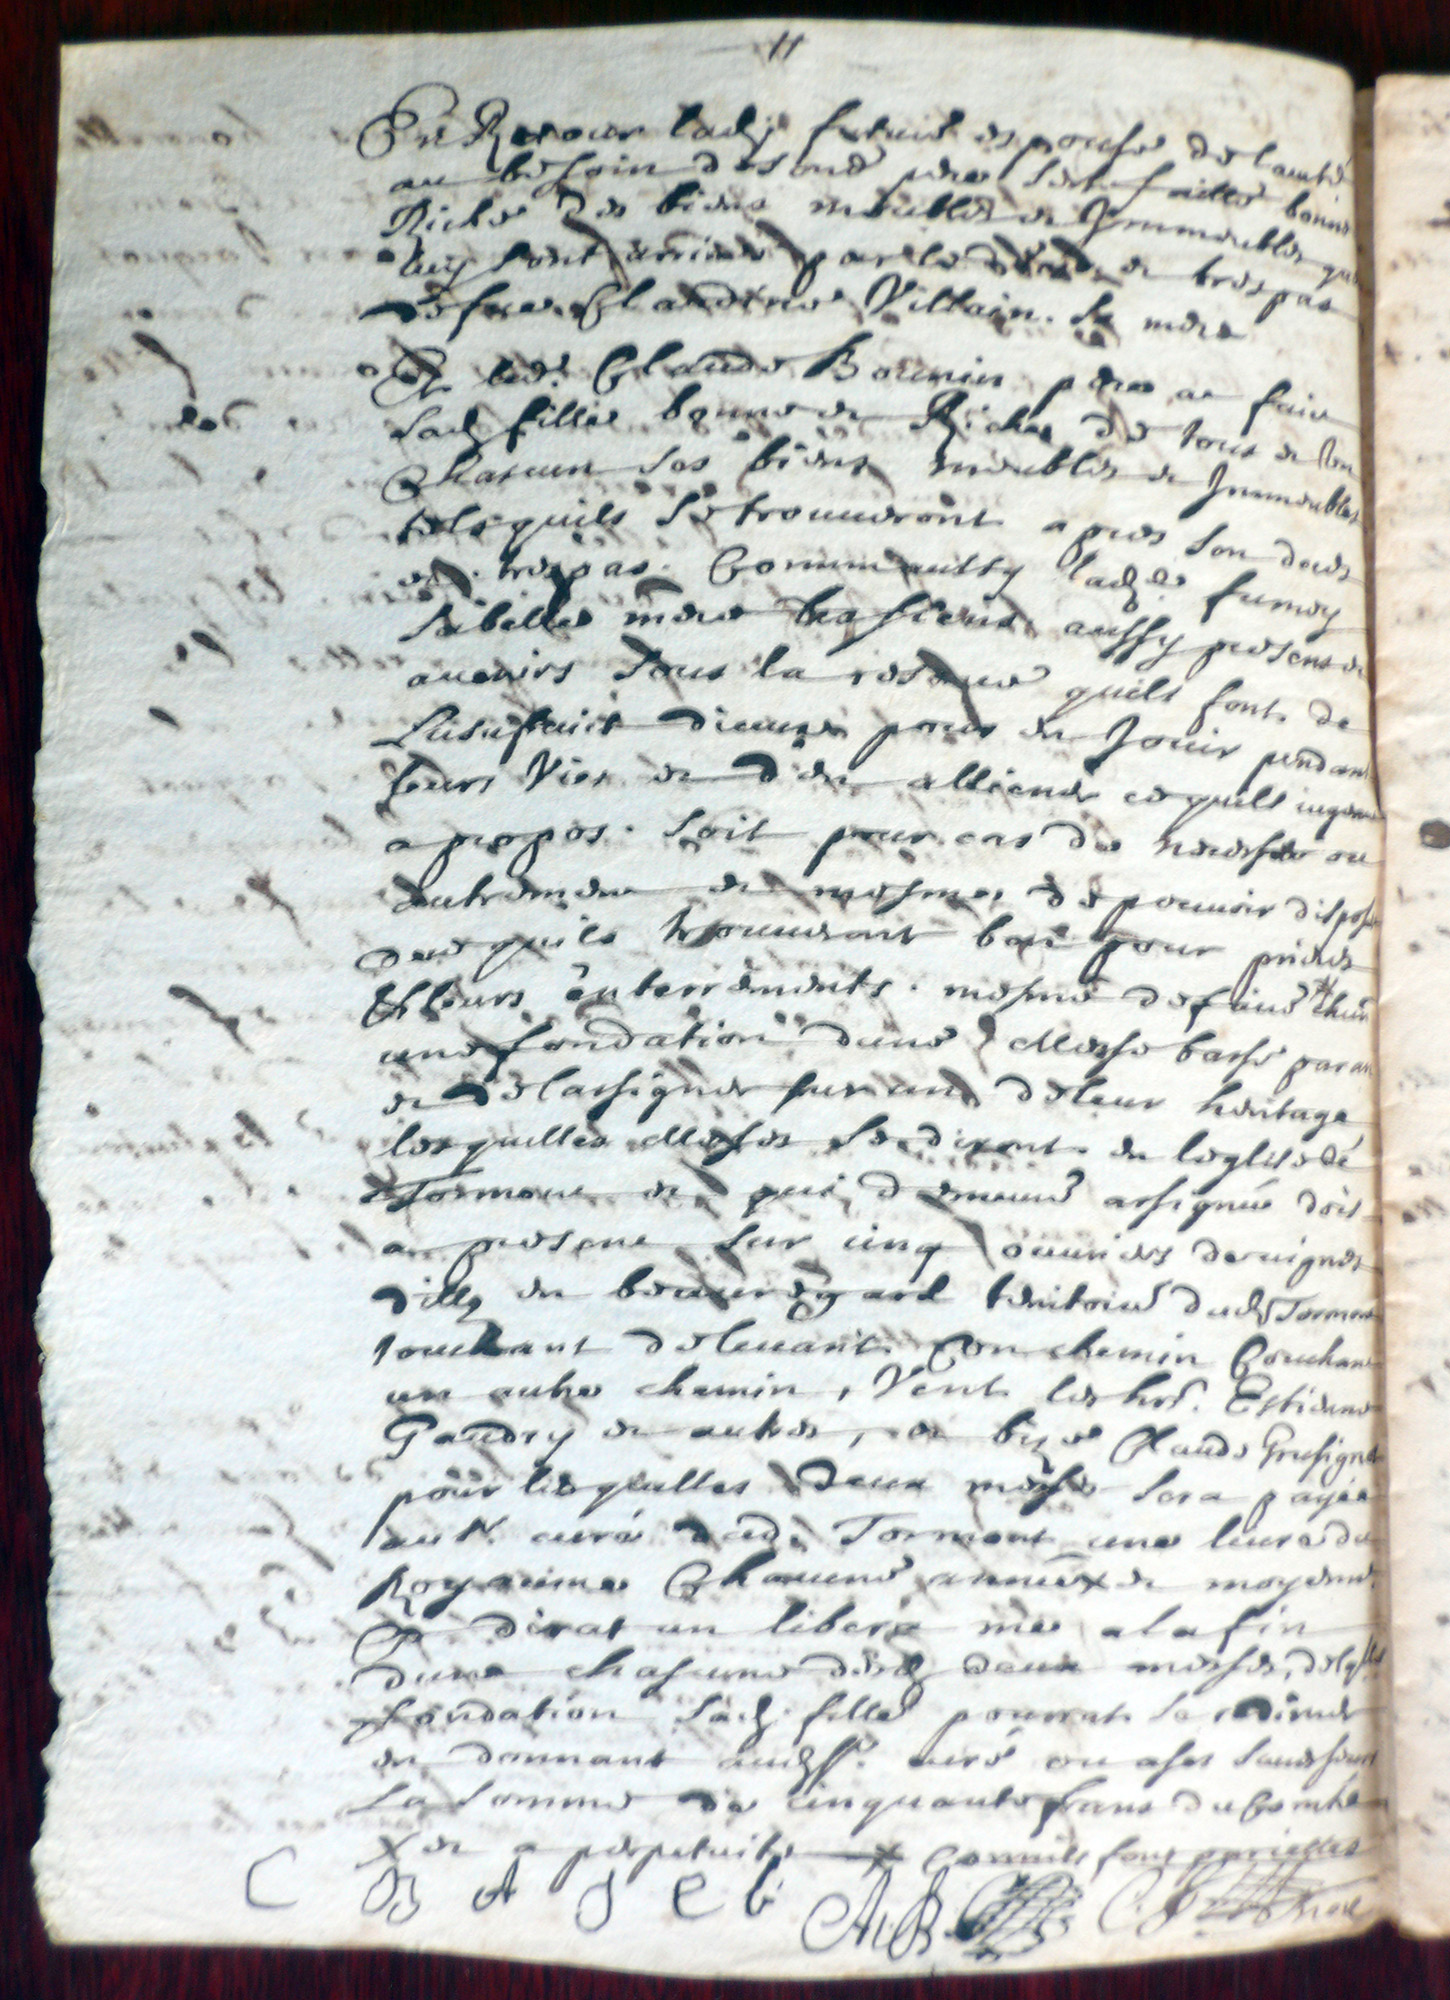 11
En Retour lad. future espouse de lauth
au besoin de sond. pere sest faitte bonne
Riche des biens meubles et Immeubles que
luy sont arrivéz par le decez et trespas
de feue Claudine Villain sa mere
Et led. Claude Bounin pere a fait
Lad. fille bonne et Riche de tous et un
Chascun ses biens meubles et Immeubles
tels quils se trouueront apres son deces
et trespas. Comme aussy lad.
mere les siens aussy presens et
auenirs sous la reserue quils font de
Lusufruict diceux pour en Jouir pendant
leurs Vies et den alliener ce quils iugeront
a propos. soit pour cas de necessité ou
autrement et mesme de pouuoir disposer
de ce quils trouueront bon pour prieres
et leurs enterrements. mesme de faire
une fondation dune Messe basse par an
et de lassigner sur un de leur heritage
lesquelles Messes se diront en leglise de
Tormont et qui demeure assignée dois
a present sur cinq ouuriers de uignes
territoire dud. Tormont
touchant de leuant Con chemin Couchant
un autre chemin, Vent les hrs. Estienne
Gaudry et autres, et bize Claude
pour lesquelles deux messes sera payée
au Sr. curé dud. Tormont une liure du
Royaume Chacune année x et moyenn.
dirat un libera me a la fin
dune chascune desd. deux messes, de lqlle
fondation Lad. fille pourrat se redimer
en donnant aud. Sr. curé ou a ses successeurs
La somme de cinquante frans du Comté
x et a perpetuité x
C B A J C b A.B. C.